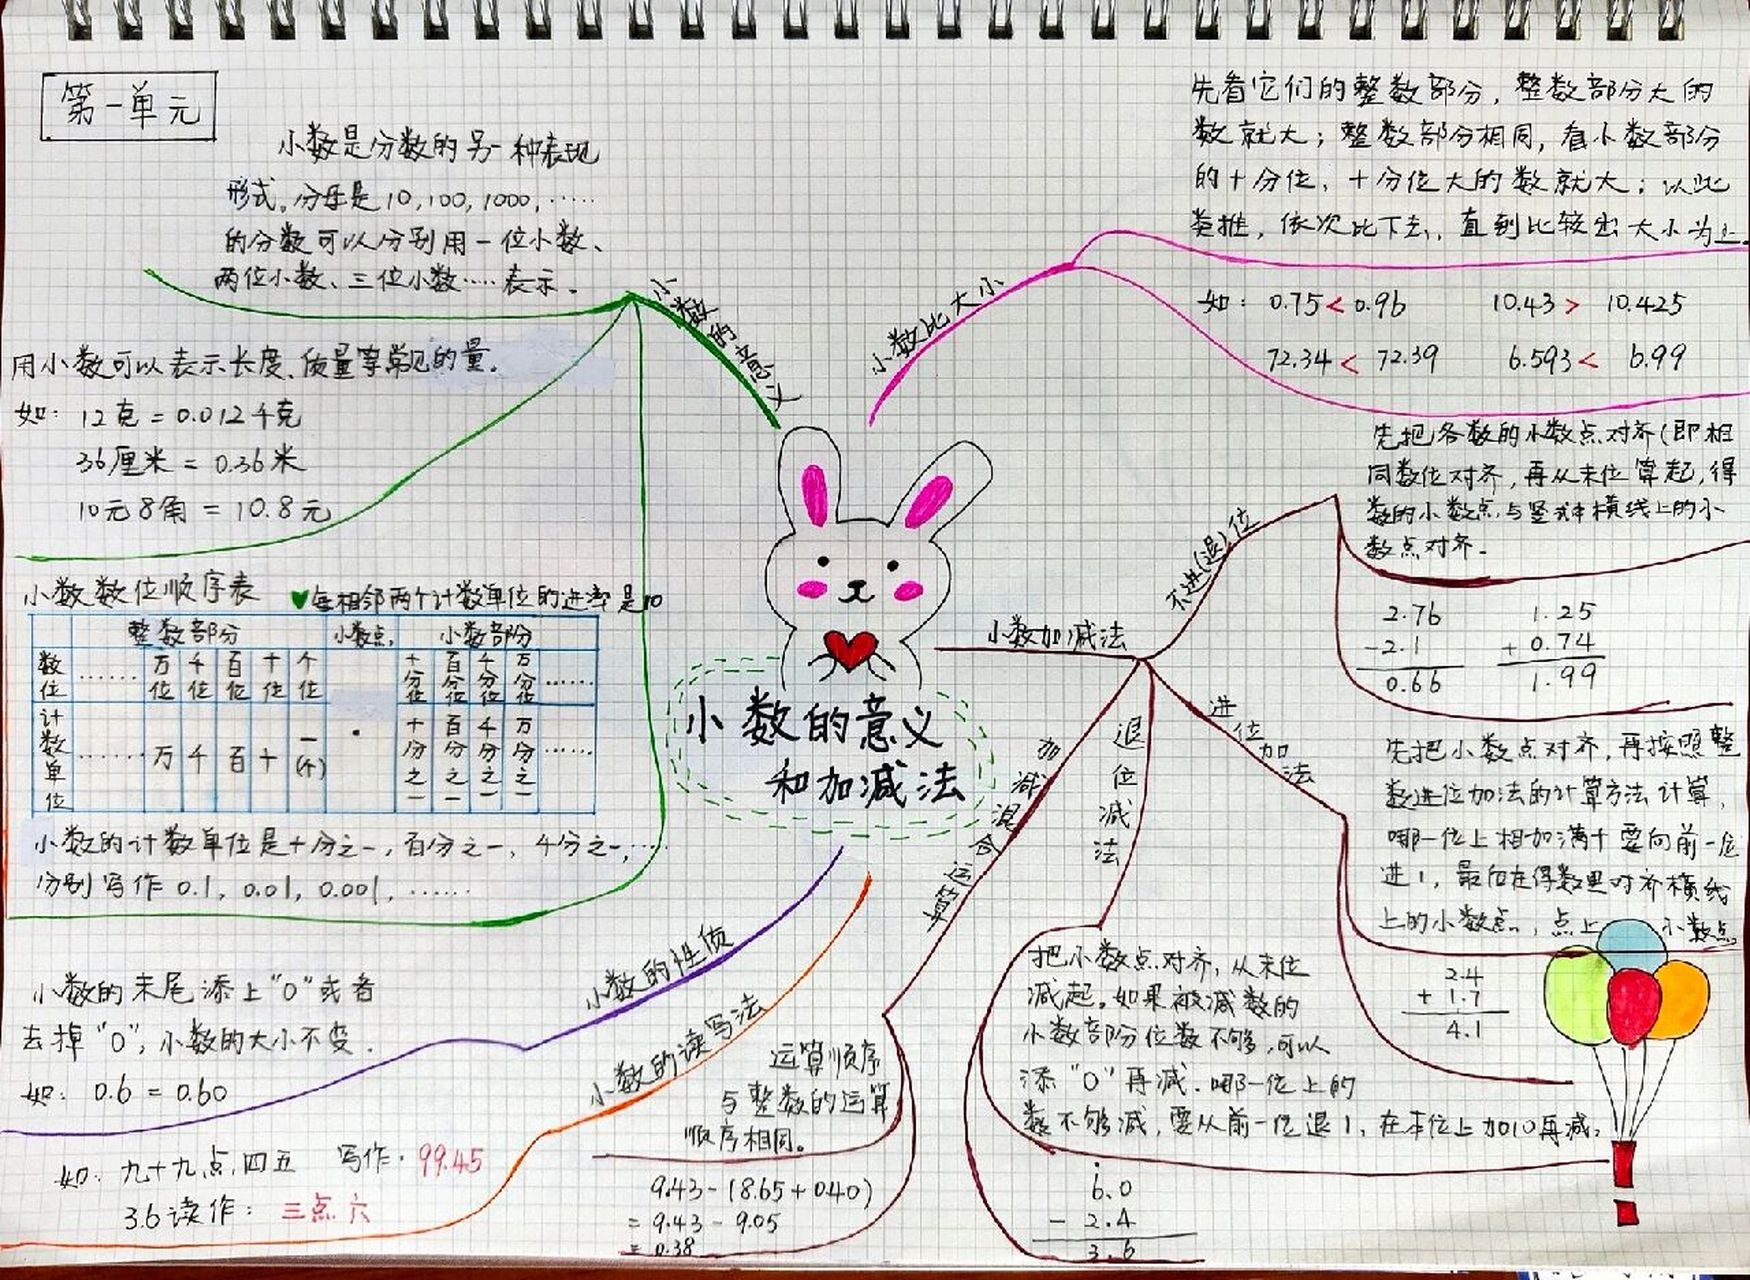 第一单元
小数是分数的另一种表现
形式。分母是10,100,1000,……
的分数可以分别用一位小数、
两位小数、三位小数……表示。
小数的意义
用小数可以表示长度、质量等常见的量。
如：12克=0.012千克
36厘米=0.36米
10元8角=10.8元
小数数位顺序表
♥每相邻两个计数单位的进率是10
整数部分 小数点 小数部份
数位 …… 万位 千位 百位 十位 个位 十分位 百分位 千分位 万分位 ……
计数单位 …… 万 千 百 十 一(个) · 十分之一 百分之一 千分之一 万分之一 ……
小数的计数单位是十分之一,百分之一、千分之一,…
分别写作0.1,0.01,0.001,……
小数的意义
和加减法
小数的性质
小数的末尾添上"0"或者
去掉"0",小数的大小不变.
如：0.6=0.60
小数的读写法
如：九十九点四五 写作：99.45
3.6读作：三点六
小数比大小
先看它们的整数部分，整数部分大的
数就大；整数部分相同，看小数部分
的十分位，十分位大的数就大；以此
类推，依次比下去，直到比较出大小为止
如：0.75<0.96 10.43> 10.425
72.34< 72.39 6.593< 6.99
小数加减法
不进(退)位
先把各数的小数点对齐(即相
同数位对齐，再从末位算起,得
数的小数点与竖式中横线上的小
数点对齐.
2.76 1.25
-2.1 +0.74
0.66 1.99
进位加法
先把小数点对齐，再按照整
数进位加法的计算方法计算，
哪一位上相加满十要向前一位
进1，最后在得数里对齐横线
上的小数点，点上 小数点
2.4
+1.7
4.1
退位减法
把小数点对齐，从末位
减起。如果被减数的
小数部分位数不够,可以
添"0"再减.哪一位上的
数不够减，要从前一位退1，在本位上加10再减.
6.0
-2.4
3.6
加减混合运算
运算顺序
与整数的运算
顺序相同。
9.43-(8.65+0.40)
=9.43-9.05
=0.38